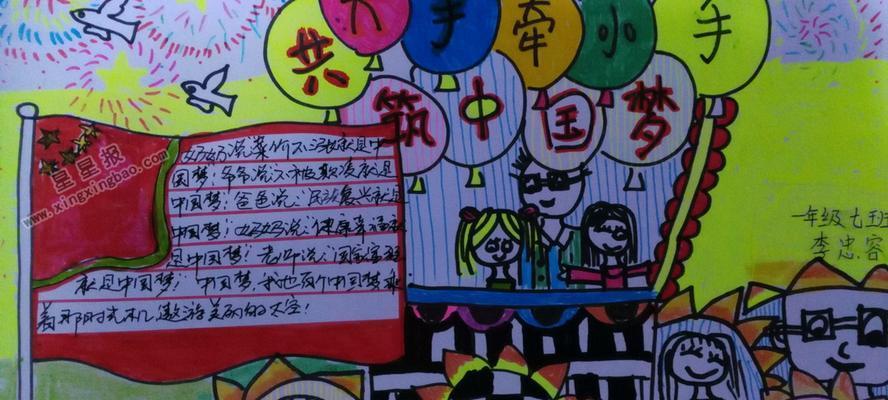 大手牵小手
共筑中国梦
星星报
www.xingxingbao.com
奶奶说菜价不涨就是中
国梦；爷爷说不被欺凌就是
中国梦；爸爸说：民族复兴就是
中国梦；妈妈说：健康幸福就
是中国梦；老师说：国家富强
就是中国梦；中国梦，我也有个中国梦乘
着那时光机遨游美丽的天空！
一年级七班
李忠容